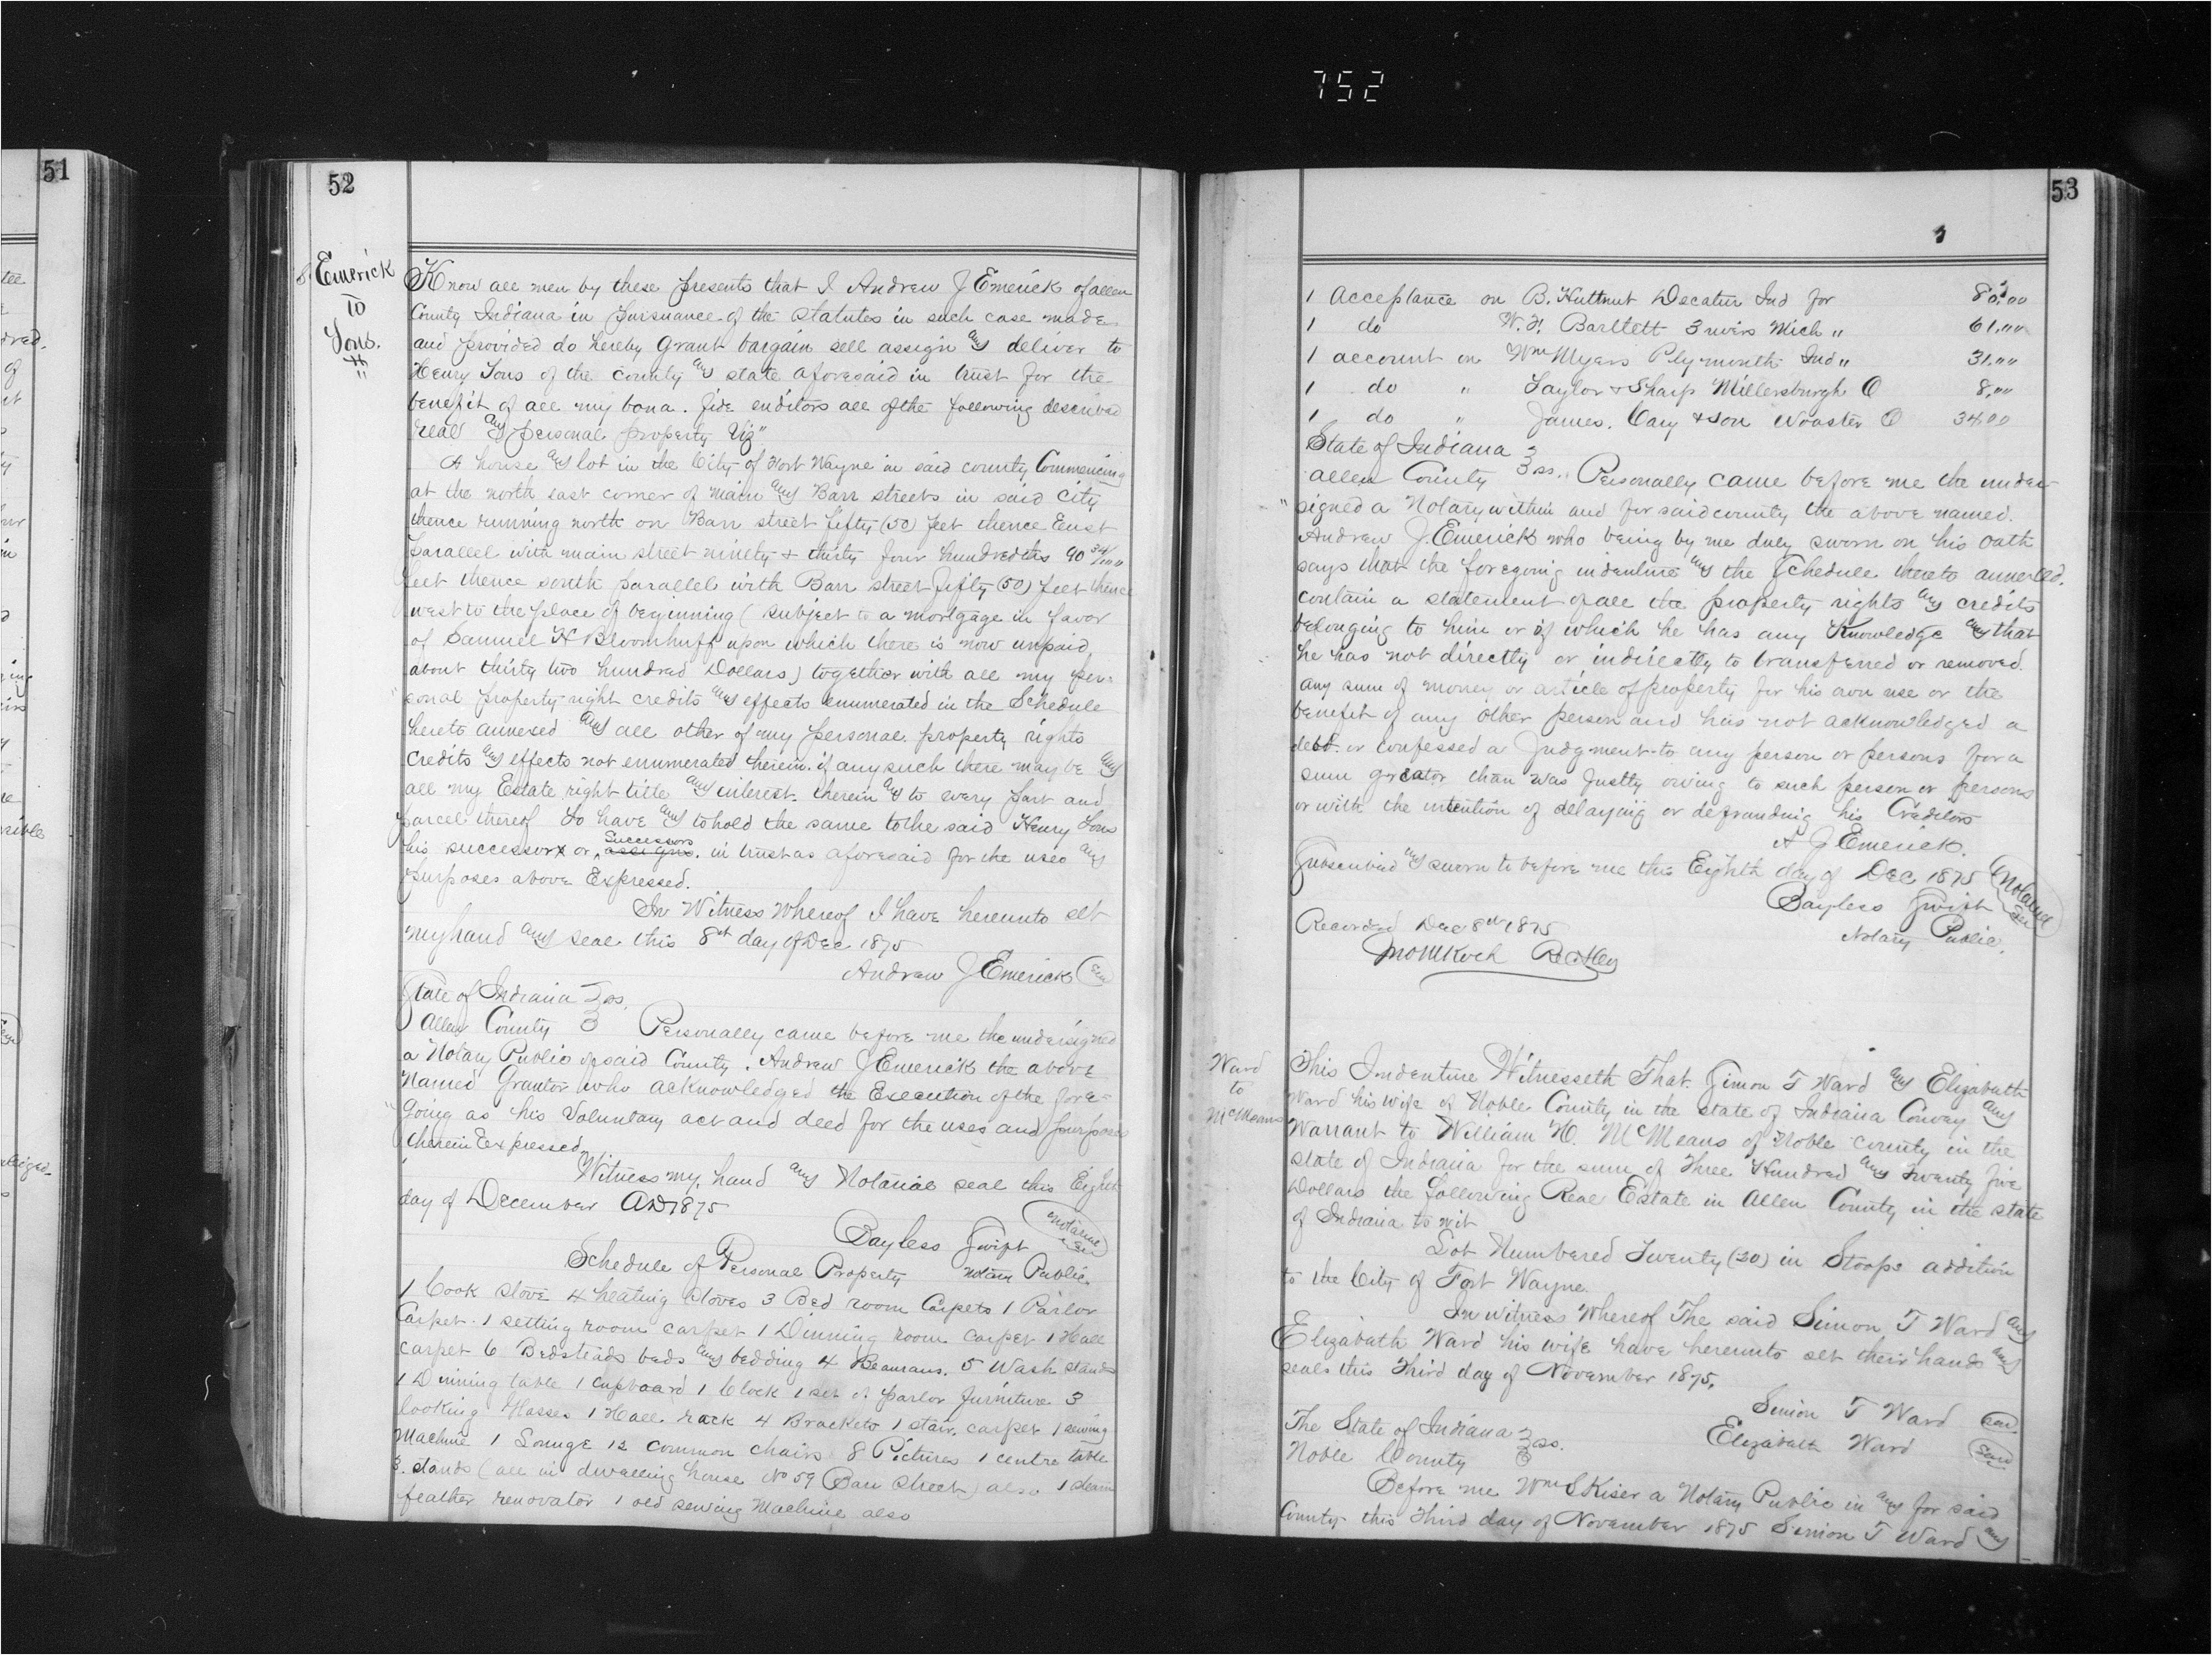 752
51
52
Emerick
TO
Tons.
Know all men by these presents that I Andrew J Emerick of allen
County Indiana in pursuance of the statutes in such case made
and provided do hereby Grant bargain sell assign any deliver to
Henry Tons of the county any state aforesaid in trust for the
benefit of all my bona. fide enditors all of the following described
real any personal property Viz"
A house any lot in the City of Fort Wayne in said county Commencing
at the north east corner of main any Barr streets in said City
thence running north on Barr street fifty (50) feet thence East
parallel with main street ninety & thirty four hundredths 90 34/100
feet thence south parallel with Barr street fifty (50) feet thence
west to the place of beginning (subject to a mortgage in favor
of Samuel H Bloomhuff upon which there is now unpaid
about thirty two hundred Dollars) together with all my per=
sonal property right credits any effects enumerated in the Schedule
hereto annexed any all other of my personal property rights
credits any effects not enumerated therein. if any such there may be any
all my Estate right title any interest. therein any to every part and
parcel thereof To have any to hold the same to the said Henry Tons
his successor or assigns. Successors in trust as aforesaid for the uses any
purposes above Expressed.
In Witness Whereof I have hereunto set
my hand any seal this 8th day of Dec 1875
Andrew J Emerick (Seal)
State of Indiana } ss.
Allen County } Personally came before me the undersigned
a Notary Public of said County. Andrew J Emerick the above
Named Grantor who acknowledged the Execution of the fore=
"going as his Voluntary act and deed for the uses and purposes
therein Expressed.
Witness my hand any Notarial seal this Eighth
day of December AD 1875
Bayless Swift (Notarial Seal)
Schedule of Personal Property Notary Public.
1 Cook stove 4 heating stoves 3 Bed room Carpets 1 Parlor
Carpet. 1 setting room carpet 1 Dinning room Carpet 1 Hall
carpet 6 Bedsteads beds any bedding 4 Beaureaus. 5 Wash stands
1 Dinning table 1 cupboard 1 Clock 1 set of parlor furniture 3
looking Glasses 1 Hall rack 4 Brackets 1 stair. carpet 1 sewing
Machine 1 Lounge 12 common chairs 8 Pictures 1 centre table
3. stands (all in dwelling house No 59 Barr Street) also 1 steam
feather renovator 1 old sewing Machine also
53
1 Acceptance on B. Huttnut Decatur Ind for 80.00
1 do W. F. Bartlett 3 rivers Mich " 61.""
1 account on Wm Myers Plymouth Ind " 31.""
1 do " Taylor & Sharp Millersburgh O 8.""
1 do " James. Cary & Son Wooster O 34.00
State of Indiana }
allen County } ss.. Personally came before me the under
"signed a Notary within and for said county the above named.
Andrew J. Emerick who being by me duly sworn on his oath
says that the foregoing indenture any the Schedule thereto annexed.
contain a statement of all the property rights any credits
belonging to him or of which he has any Knowledge any that
he has not directly or indirectly to transferred or removed
any sum of money or article of property for his own use or the
benefit of any other person and has not acknowledged a
debt or confessed a Judgment to any person or persons for a
sum greater than was Justly owing to such person or persons
or with the intention of delaying or defrauding his Creditors
A J Emerick.
Subscribed any sworn to before me this Eighth day of Dec 1875 (Notarial Seal)
Bayless Swift
Notary Public.
Recorded Dec 8th 1875
Jno M Koch
Ward
to
McMeans
This Indenture Witnesseth That. Simon T Ward any Elizabath
Ward his wife of Noble County in the state of Indiana Convey any
Warrant to William H. McMeans of Noble county in the
state of Indiana for the sum of Three Hundred any Twenty five
Dollars the following Real Estate in Allen County in the state
of Indiana to wit
Lot Numbered Twenty (20) in Stoops addition
to the City of Fort Wayne.
In witness Whereof The said Simon T Ward any
Elizabath Ward his wife have hereunto set their hands any
seals this Third day of November 1875.
Simon T Ward (Seal)
The State of Indiana } ss. Elizabath Ward (Seal)
Noble County }
Before me Wm S Kiser a Notary Public in any for said
County this Third day of November 1875 Simon T Ward any